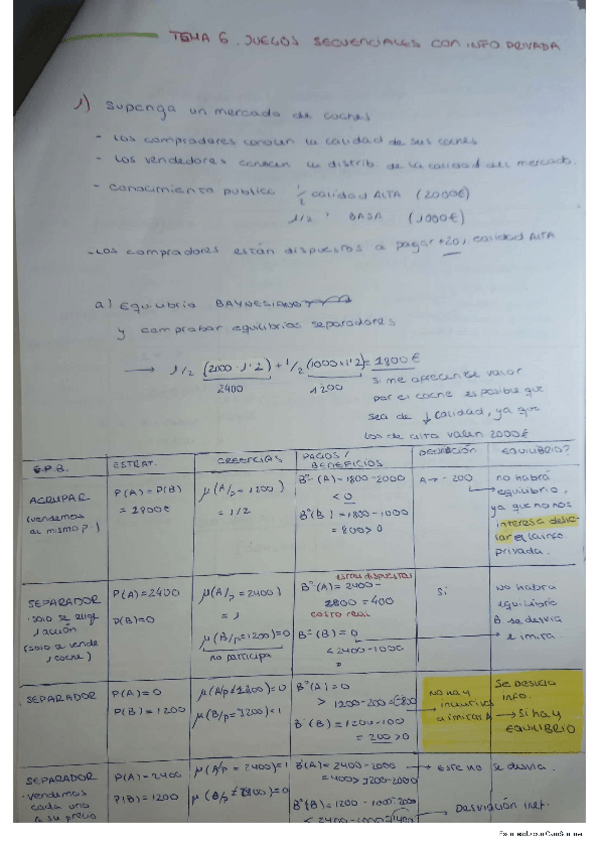 TEMA 6. JUEGOS SECUENCIALES CON INFO PRIVADA
1) Suponga un mercado de coches
- Los compradores conocen la calidad de sus coches
- Los vendedores conocen la distrib. de la calidad del mercado.
- Conocimiento publico 1/2 calidad ALTA (2000€)
1/2 " BAJA (1000€)
- Los compradores están dispuestos a pagar +20% calidad ALTA
a) Equilibrio BAYNESIANO
y comprobar equilibrios separadores
→ 1/2 (2000·1'2) + 1/2 (1000·1'2) = 1800€
2400 1200
si me ofrecen este valor
por el coche es posible que
sea de ↓ calidad, ya que
los de alto valen 2000€
E.P.B. ESTRAT. CREENCIAS PAGOS / BENEFICIOS DESVIACIÓN EQUILIBRIO?
AGRUPAR
(vendemos
al mismo p.)
P(A) = P(B)
= 1800€
μ(A/p = 1800)
= 1/2
Bº (A) = 1800 - 2000
< 0
Bº (B) = 1800 - 1000
= 800 > 0
A → - 200
no habrá
equilibrio,
ya que no nos
interesa desve
lar la info
privada.
SEPARADOR
· solo se elige
1 acción
(solo se vende
1 coche)
P(A) = 2400
P(B) = 0
μ(A/p = 2400)
= 1
μ(B/p = 1200) = 0
no participa
estoy dispuesto
Bº (A) = 2400 -
2000 = 400
coste real
Bº (B) = 0
< 2400 - 1000
Si
No habra
equilibrio
B se desvia
e imita.
SEPARADOR
P(A) = 0
P(B) = 1200
μ(B/p = 1200) < 1
Bº (A) = 0
> 1200 - 200
Bº (B) = 1200 - 100
= 200 > 0
No hay
incentivos
a imitar A
Se desvela
info.
→ Si hay
EQUILIBRIO
SEPARADOR
· vendemos
cada uno
a su precio
P(A) = 2400
P(B) = 1200
μ(A/p = 2400) = 1
B(A) = 2400 - 2000
= 400 > 1200 - 2000
→ este no se desvia.
Bº (B) = 1200 - 1000 = 200
< 2400 - 1000 = 1400
→ Desviación inet.
Escaneado con CamScanner